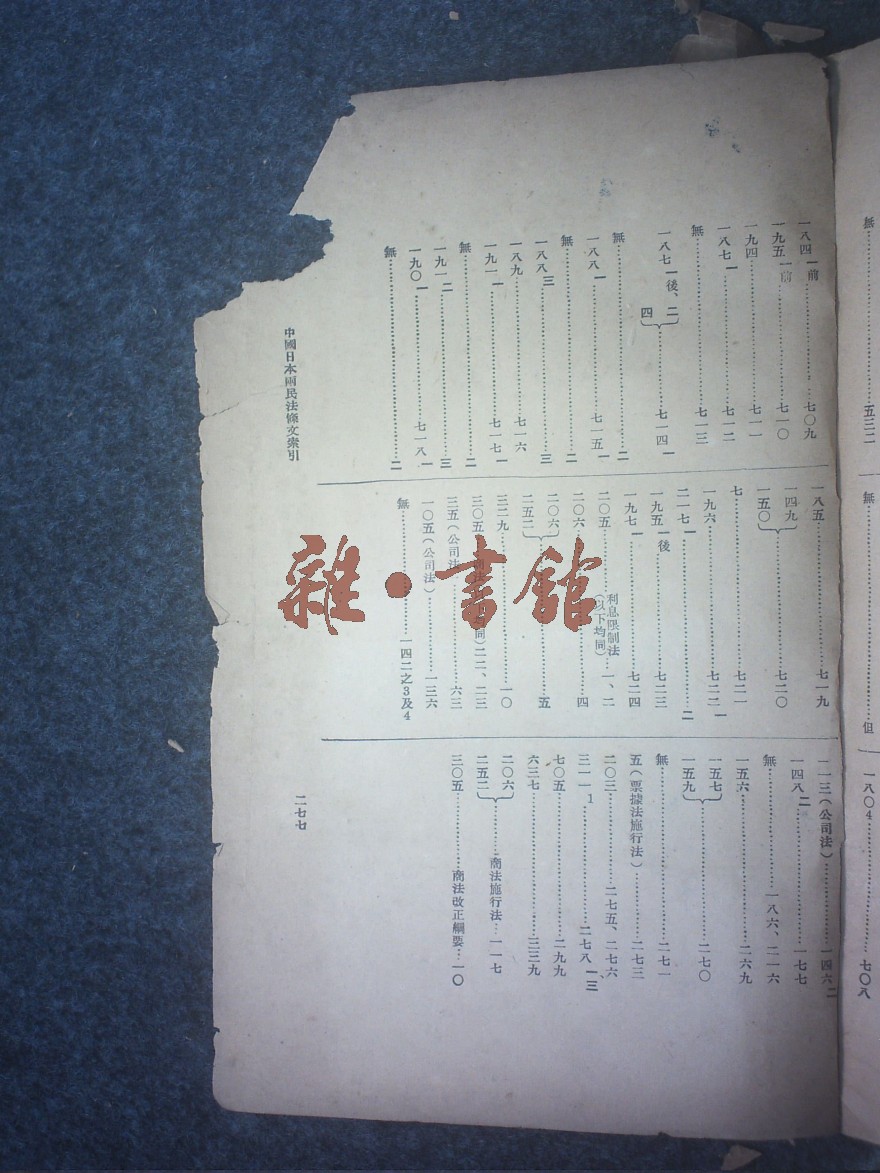 一八四一前……七〇九
一九五一前……七一〇
一九四……七一一
一八七一……七一二
無……七一三
一八七一後、二 四……七一四一
無……二
一八八一……七一五一
無……二
一八八三……三
一八九……七一六
一九一一……七一七一
無……二
一九一二……三
一九〇一……七一八一
無……二
一八五……七一九
一四九 一五〇……七二〇
七……七二一
一九六……七二二一
二一七一……二
一九五一後……七二三
一九七一……七二四
二〇五……利息限制法(以下均同)一、二
二〇六……四
二〇六 二五二……五
三二九……一〇
三〇五……同)二二、二三
三五(公司法……六三
一〇五(公司法)……一三六
無……一四二之3及4
一一三(公司法)……一四六二
一四八二……一七七
無……一八六、二一六
一五六……二六九
一五七 一五九……二七〇
無……二七一
五(票據法施行法)……二七三
二〇三……二七五、二七六
三一一1……二七八一、三
七〇五……二九九
六三七……三三九
二〇六 二五二……商法施行法……一一七
三〇五……商法改正綱要……一〇
中國日本兩民法條文索引
二七七
雜·書館
無……五三二
無……但
一八〇4……七〇八